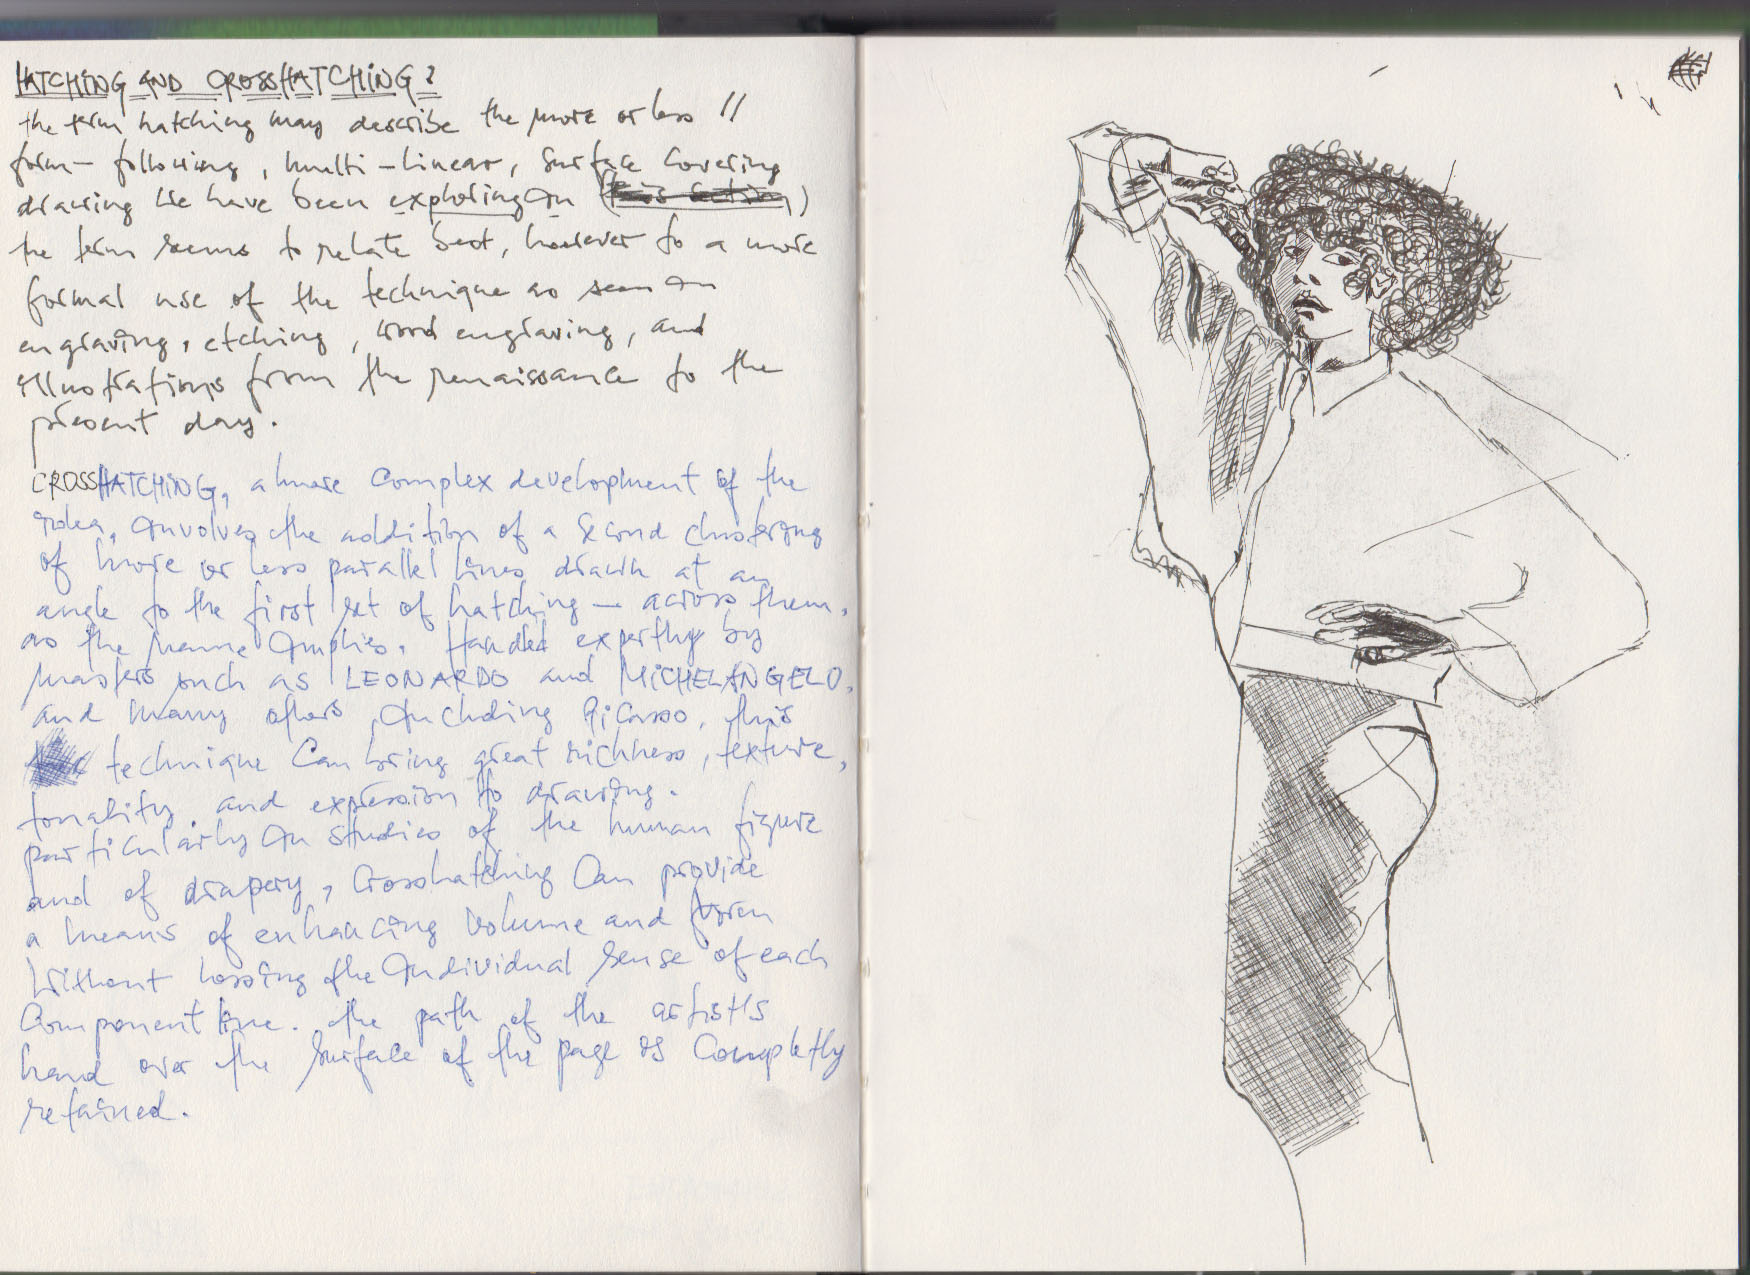 HATCHING AND CROSSHATCHING?
the term hatching may describe the more or less //
form - following, multi - linear, surface covering
drawing we have been exploring in (this section)
the term seems to relate best, however to a more
formal use of the technique as seen in
engraving, etching, wood engraving, and
illustrations from the renaissance to the
present day.
CROSSHATCHING, a more complex development of the
idea, involves the addition of a second clustering
of more or less parallel lines drawn at an
angle to the first set of hatching - across them,
as the name implies. Handled experthy by
masters such as LEONARDO and MICHELANGELO,
and many others, including Picasso, this
technique can bring great richness, texture,
tonality, and expression to drawing.
particularly in studies of the human figure
and of drapery, crosshatching can provide
a means of enhancing volume and form
without lossing the individual sense of each
component line. the path of the artist's
hand over the surface of the page is completly
retained.